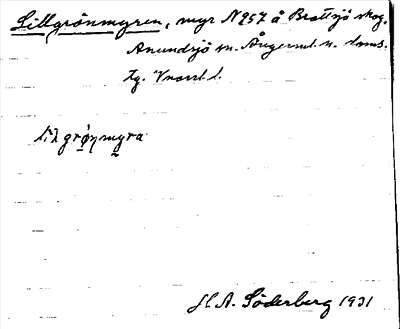 Lillgrönmyren, myr N 957 å Brattsjö skog,
Anundsjö sn. Ångerml. n. doms.
tg. Vnorrl. l.
lil grø̀ŋmyra
H. A. Söderberg 1931